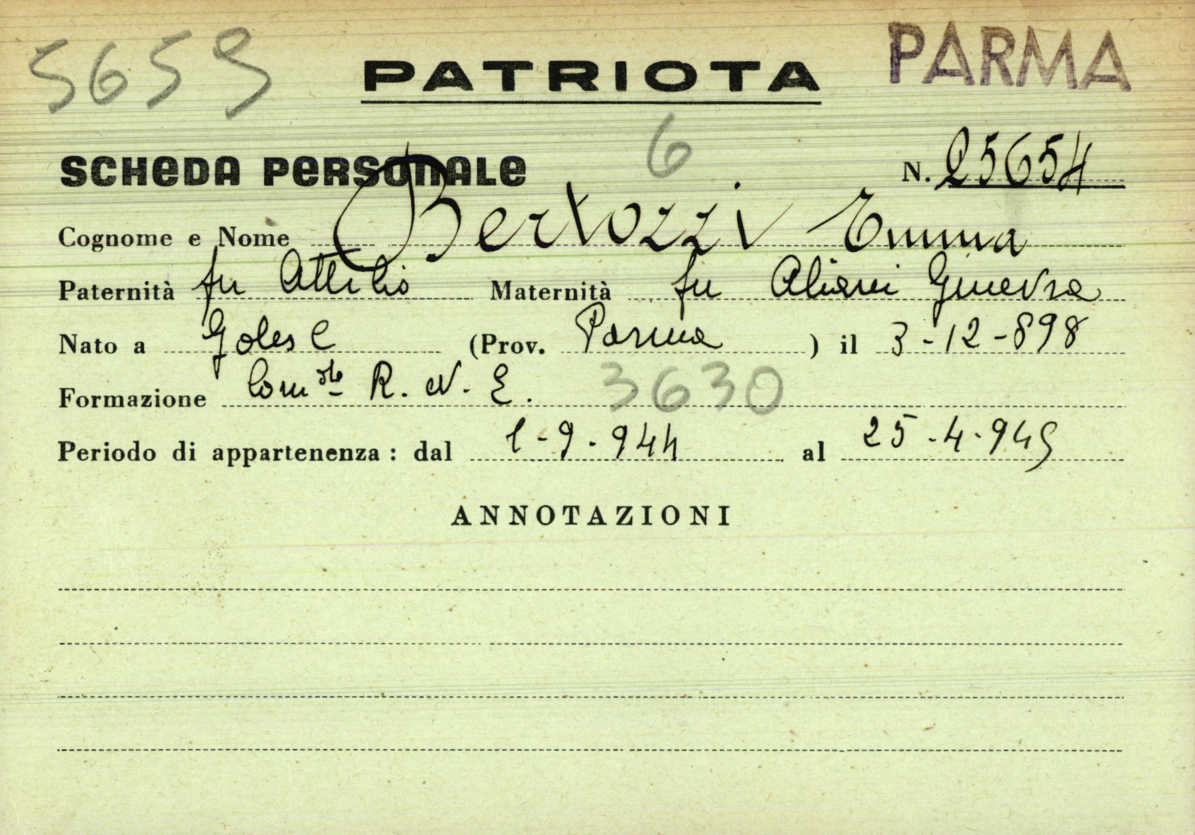 5659 PATRIOTA PARMA
6
SCHEDA PERSONALE N. 25654
Cognome e Nome Bertozzi Emma
Paternità fu Attilio Maternità fu Ginevra
Nato a Golese (Prov. Parma ) il 3-12-898
Formazione Com do R. N. E. 3630
Periodo di appartenenza: dal 1-9-944 al 25-4-945
ANNOTAZIONI